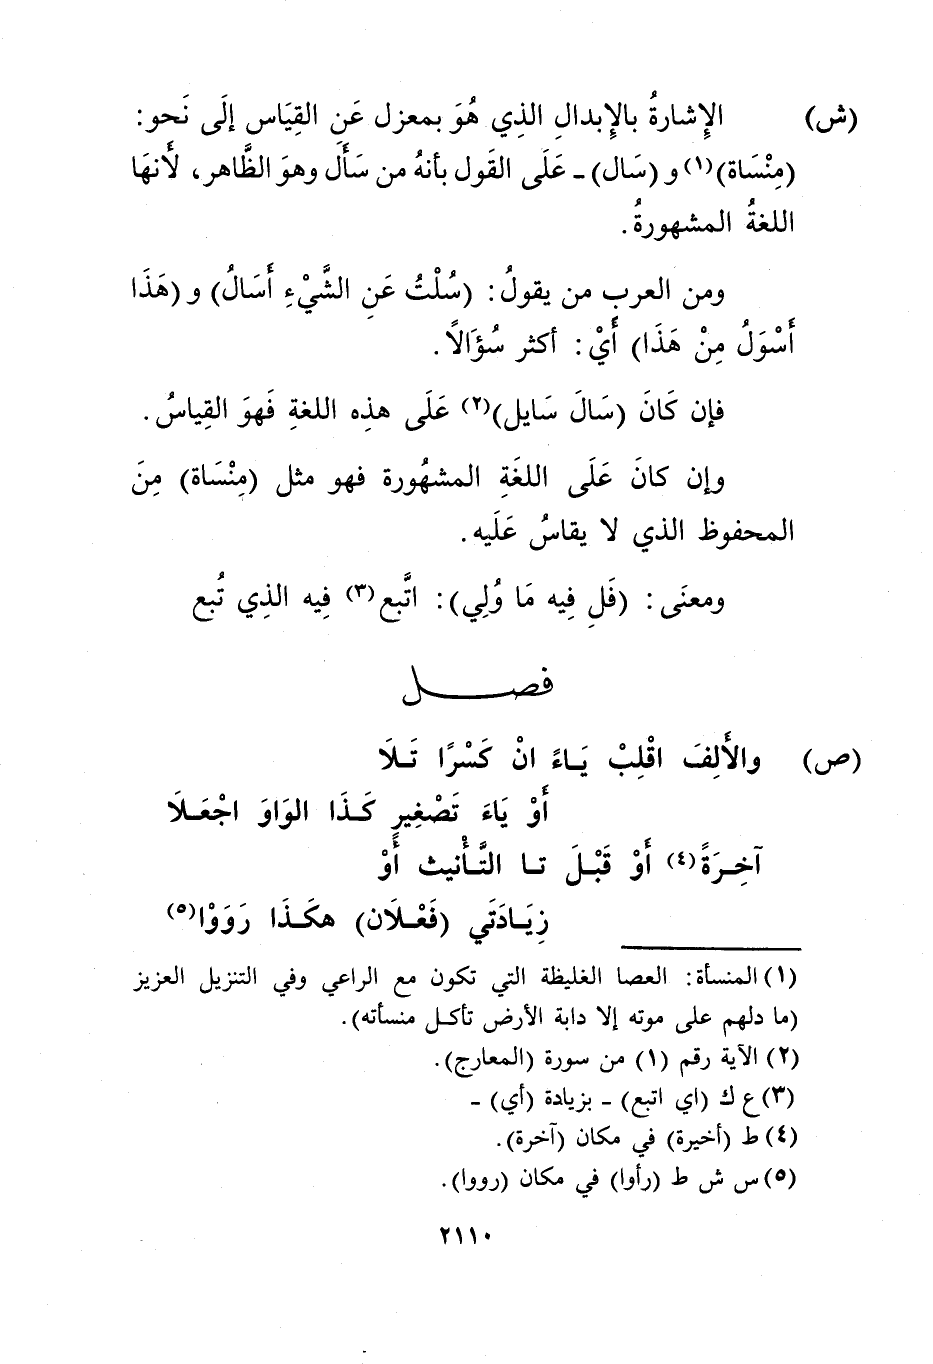 (ش) الإِشارةُ بالإِبدالِ الذِي هُوَ بمعزل عَنِ القِيَاس إلَى نَحو:
(مِنْسَاة)(١) و (سَال) ـ عَلَى القَول بأنهُ من سَأَل وهوَ الظَّاهر، لأنهَا
اللغةُ المشهورةُ.
ومن العربِ من يقولُ: (سُلْتُ عَنِ الشَّيْءِ أَسَالُ) و (هَذَا
أَسْوَلُ مِنْ هَذَا) أَيْ: أكثر سُؤَالاً.
فإن كَانَ (سَالَ سَايل)(٢) عَلَى هذِه اللغةِ فَهوَ القِياسُ.
وإن كانَ عَلَى اللغَةِ المشهُورة فهو مثل (مِنْسَاة) مِنَ
المحفوظ الذي لا يقاسُ عَلَيه.
ومعنَى: (فَلِ فِيه مَا وُلِي): اتَّبع(٣) فِيه الذِي تُبع
فصل
(ص) والأَلِفَ اقْلِبْ يَاءً انْ كَسْرًا تَلاَ
أَوْ يَاءَ تَصْغِيرٍ كَذَا الوَاوَ اجْعَلاَ
آخِرَةً(٤) أَوْ قَبْلَ تا التَّأْنيث أَوْ
زِيَادَتَي (فَعْلاَن) هكَذَا رَوَوْا(٥)
(١) المنسأة: العصا الغليظة التي تكون مع الراعي وفي التنزيل العزيز
(ما دلهم على موته إلا دابة الأرض تأكل منسأته).
(٢) الآية رقم (١) من سورة (المعارج).
(٣) ع ك (اي اتبع) ـ بزيادة (أي) ـ
(٤) ط (أخيرة) في مكان (آخرة).
(٥) س ش ط (رأوا) في مكان (رووا).
٢١١٠